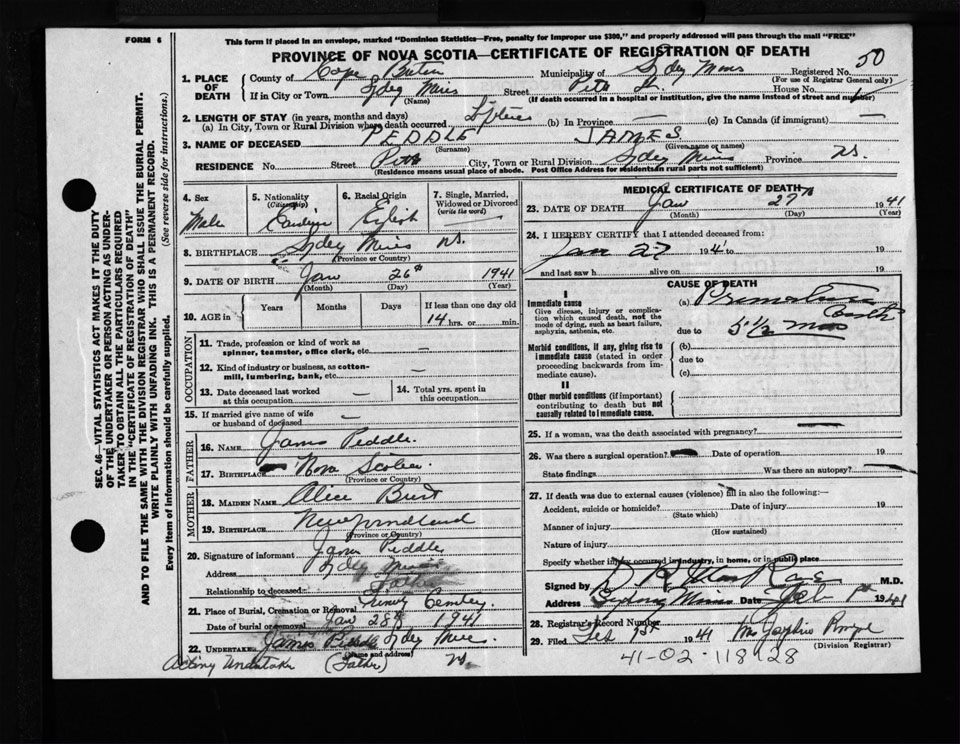 FORM 6
This form if placed in an envelope, marked "Dominion Statistics—Free, penalty for improper use $300," and properly addressed will pass through the mail "FREE"
PROVINCE OF NOVA SCOTIA—CERTIFICATE OF REGISTRATION OF DEATH
50
1. PLACE OF DEATH County of Cape Breton Municipality of Sydey Mines Registered No.
(For use of Registrar General only)
If in City or Town Sydey Mines Street Pitt St. House No.
(Name) (If death occurred in a hospital or institution, give the name instead of street and number)
2. LENGTH OF STAY (in years, months and days)
(a) In City, Town or Rural Division where death occurred (b) In Province — (c) In Canada (if immigrant) —
3. NAME OF DECEASED PEDDLE JAMES.
(Surname) (Given name or names)
RESIDENCE No. Street Pitt City, Town or Rural Division Sydey Mines Province NS.
(Residence means usual place of abode. Post Office Address for residents in rural parts not sufficient)
4. Sex Male
5. Nationality (Citizenship) Canadian
6. Racial Origin English
7. Single, Married, Widowed or Divorced (write the word) —
8. BIRTHPLACE Sydey Mines NS.
(Province or Country)
9. DATE OF BIRTH Jan 26th 1941
(Month) (Day) (Year)
10. AGE in Years Months Days If less than one day old
14 hrs. or min.
OCCUPATION
11. Trade, profession or kind of work as spinner, teamster, office clerk, etc. —
12. Kind of industry or business, as cotton-mill, lumbering, bank, etc. —
13. Date deceased last worked at this occupation —
14. Total yrs. spent in this occupation
15. If married give name of wife or husband of deceased —
FATHER
16. NAME James Peddle.
17. BIRTHPLACE Nova Scotia.
(Province or Country)
MOTHER
18. MAIDEN NAME Alice
19. BIRTHPLACE Newfoundland
(Province or Country)
20. Signature of informant James Peddle
Address Sydey Mines
Relationship to deceased Father
21. Place of Burial, Cremation or Removal Trinity Cemetery.
Date of burial or removal Jan 28th 1941
22. UNDERTAKER James Peddle Sydey Mines.
(Name and address)
Acting Undertaker (Father) NS.
MEDICAL CERTIFICATE OF DEATH
23. DATE OF DEATH Jan 27th 1941
(Month) (Day)
24. I HEREBY CERTIFY that I attended deceased from:
Jan 27 1941 to 19
and last saw h alive on 19
CAUSE OF DEATH
I
Immediate cause (a) Premature Birth
Give disease, injury or complication which caused death, not the mode of dying, such as heart failure, asphyxia, asthenia, etc.
due to 5 1/2 mos
Morbid conditions, if any, giving rise to immediate cause (stated in order proceeding backwards from immediate cause). (b)
due to
(c)
II
Other morbid conditions (if important) contributing to death but not causally related to immediate cause.
25. If a woman, was the death associated with pregnancy?
26. Was there a surgical operation? Date of operation 19
State findings Was there an autopsy?
27. If death was due to external causes (violence) fill in also the following:—
Accident, suicide or homicide? Date of injury 19
(State which)
Manner of injury
(How sustained)
Nature of injury
Specify whether injury occurred in industry, in home, or in public place
Signed by M.D.
Address Sydney Mines Date Feb 1st 1941
28. Registrar's Record Number
29. Filed Feb 1st 1941 Mrs Josephine
(Division Registrar)
41-02-118128
SEC. 46—VITAL STATISTICS ACT MAKES IT THE DUTY
OF THE UNDERTAKER OR PERSON ACTING AS UNDER-
TAKER TO OBTAIN ALL THE PARTICULARS REQUIRED
IN THE "CERTIFICATE OF REGISTRATION OF DEATH"
AND TO FILE THE SAME WITH THE DIVISION REGISTRAR WHO SHALL ISSUE THE BURIAL PERMIT.
WRITE PLAINLY WITH UNFADING INK. THIS IS A PERMANENT RECORD.
Every item of information should be carefully supplied. (See reverse side for instructions.)